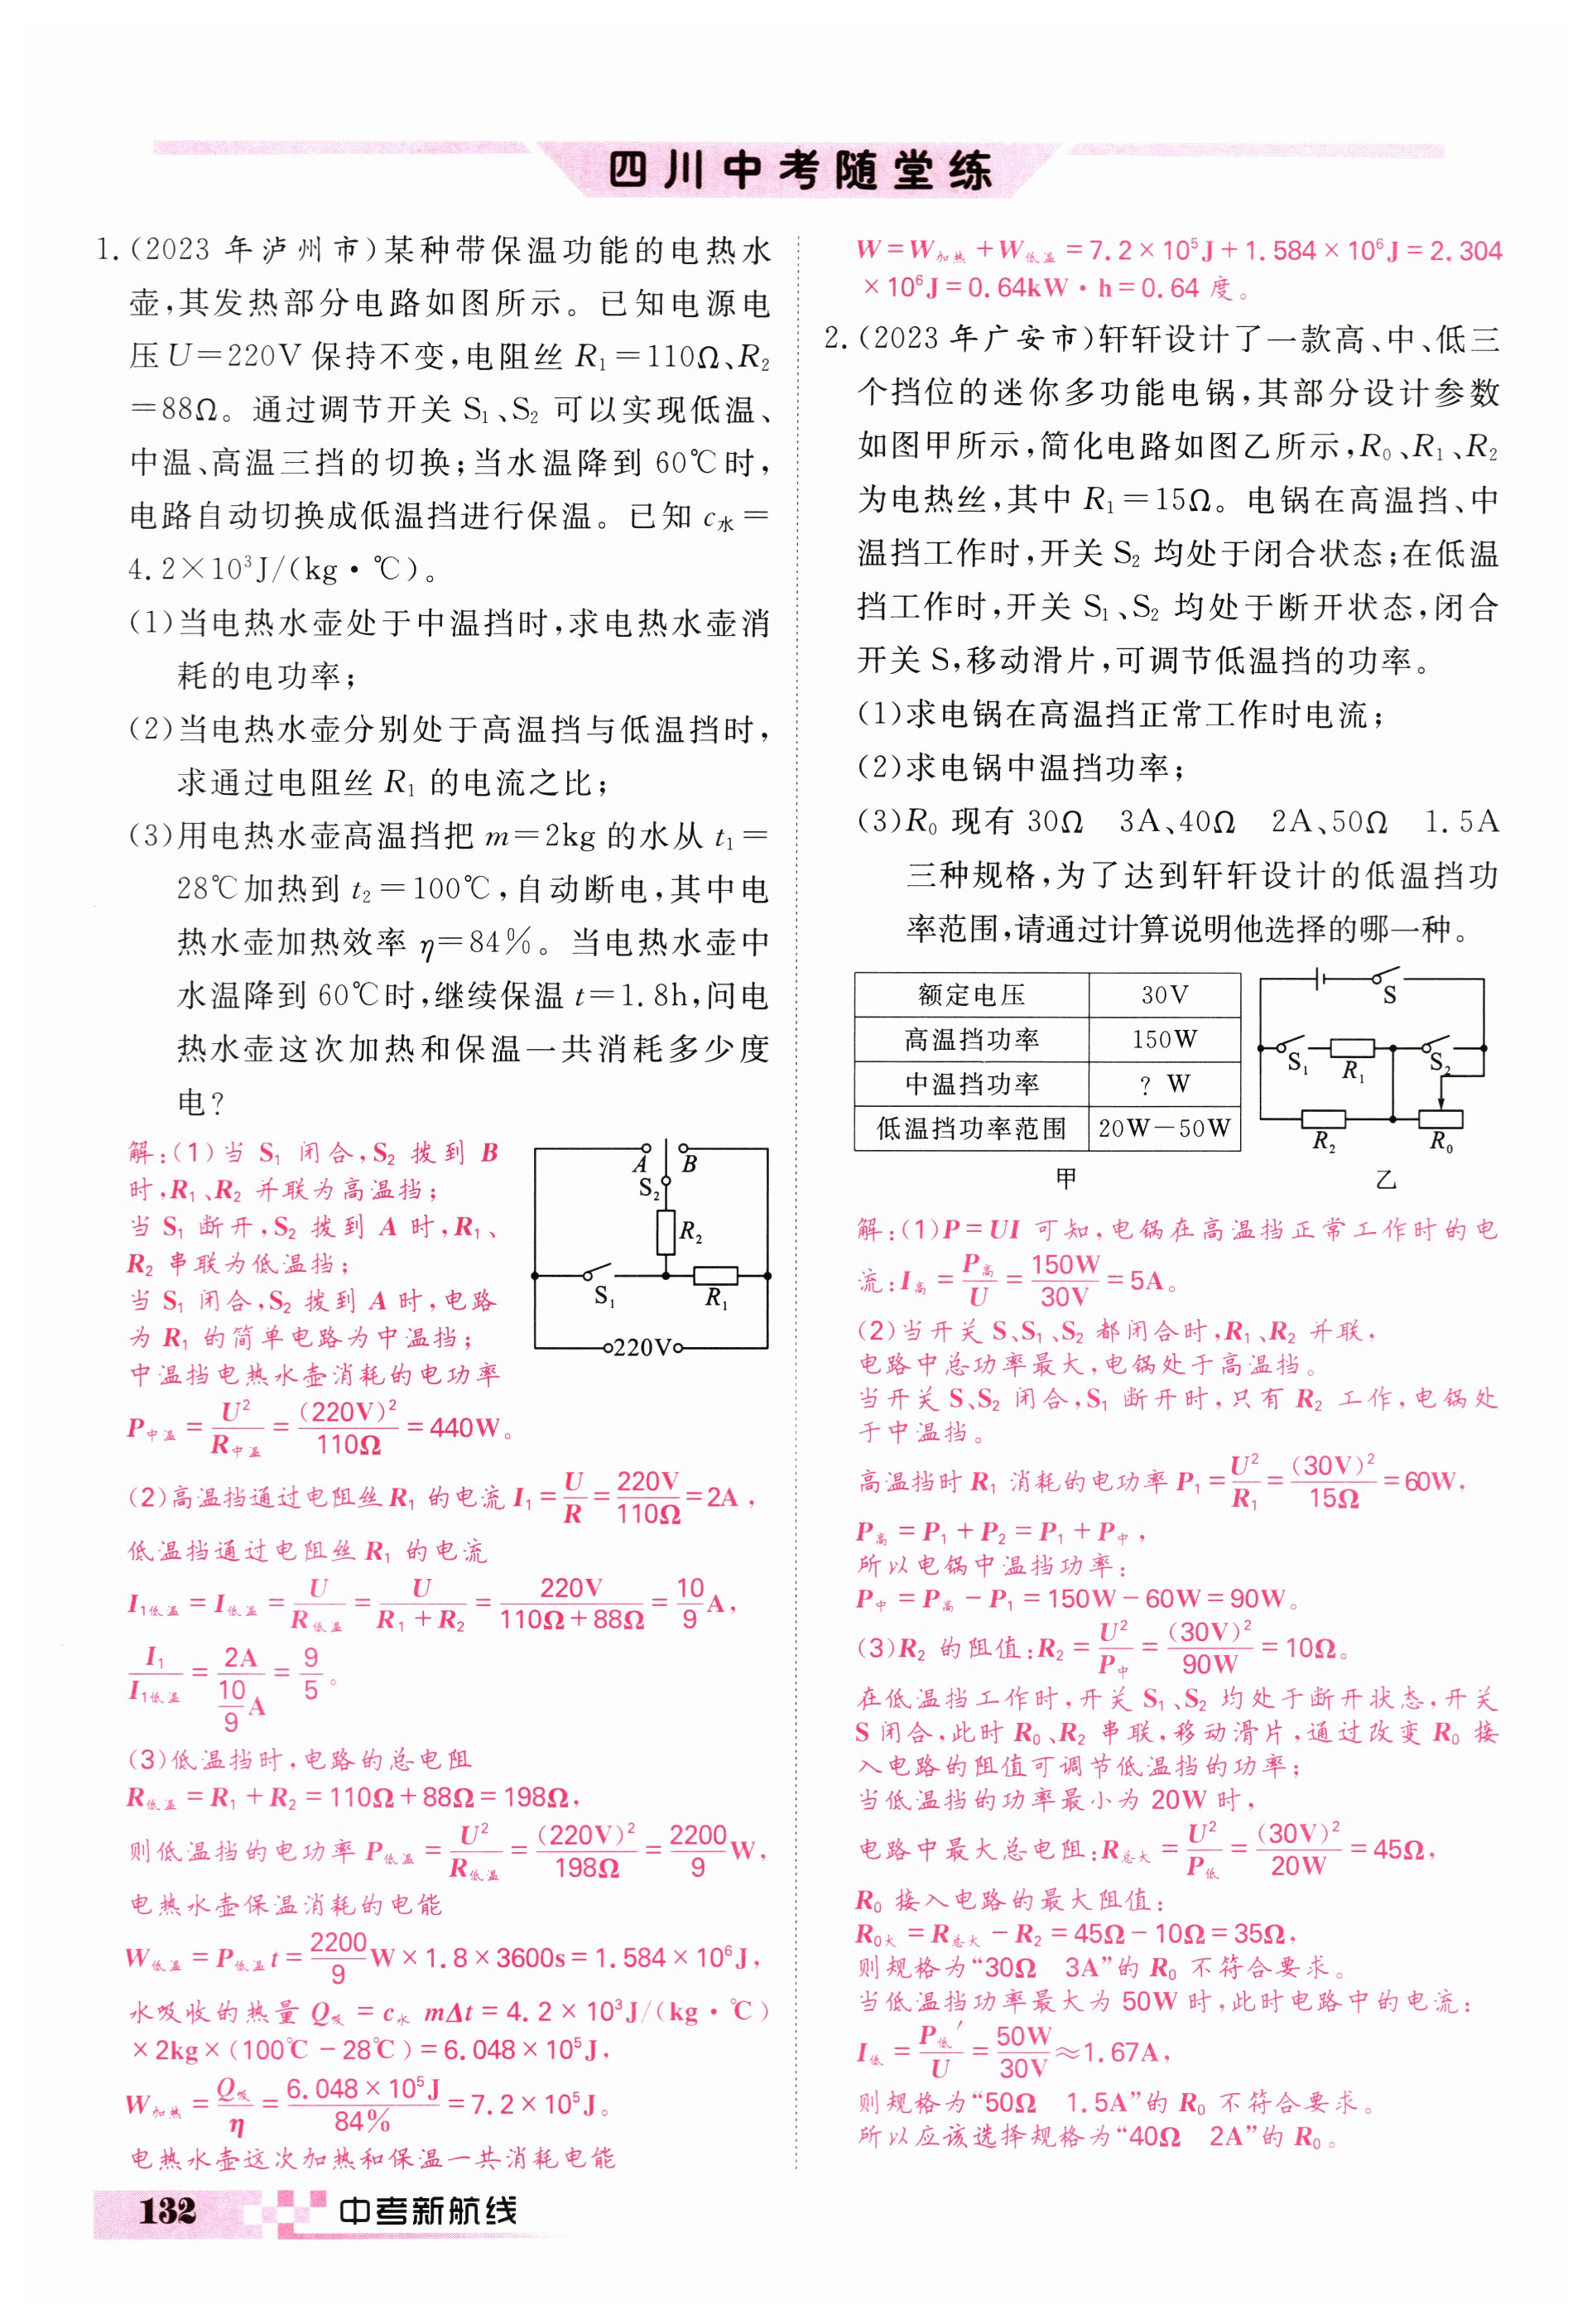 四川中考随堂练
1.(2023年泸州市)某种带保温功能的电热水
壶,其发热部分电路如图所示。已知电源电
压U=220V保持不变,电阻丝R₁=110Ω、R₂
=88Ω。通过调节开关S₁、S₂可以实现低温、
中温、高温三挡的切换;当水温降到60℃时,
电路自动切换成低温挡进行保温。已知c水=
4.2×10³J/(kg·℃)。
(1)当电热水壶处于中温挡时,求电热水壶消
耗的电功率;
(2)当电热水壶分别处于高温挡与低温挡时,
求通过电阻丝R₁的电流之比;
(3)用电热水壶高温挡把m=2kg的水从t₁=
28℃加热到t₂=100℃,自动断电,其中电
热水壶加热效率η=84%。当电热水壶中
水温降到60℃时,继续保温t=1.8h,问电
热水壶这次加热和保温一共消耗多少度
电?
解:(1)当S₁闭合,S₂拨到B
时,R₁、R₂并联为高温挡;
当S₁断开,S₂拨到A时,R₁、
R₂串联为低温挡;
当S₁闭合,S₂拨到A时,电路
为R₁的简单电路为中温挡;
中温挡电热水壶消耗的电功率
P中温=U²/R中温=(220V)²/110Ω=440W。
A B
S₂
R₂
S₁ R₁
220V
(2)高温挡通过电阻丝R₁的电流I₁=U/R=220V/110Ω=2A,
低温挡通过电阻丝R₁的电流
I₁低温=I低温=U/R低温=U/(R₁+R₂)=220V/(110Ω+88Ω)=10/9A,
I₁/I₁低温=2A/(10/9A)=9/5。
(3)低温挡时,电路的总电阻
R低温=R₁+R₂=110Ω+88Ω=198Ω,
则低温挡的电功率P低温=U²/R低温=(220V)²/198Ω=2200/9W,
电热水壶保温消耗的电能
W低温=P低温t=2200/9W×1.8×3600s=1.584×10⁶J,
水吸收的热量Q吸=c水mΔt=4.2×10³J/(kg·℃)
×2kg×(100℃-28℃)=6.048×10⁵J,
W加热=Q吸/η=6.048×10⁵J/84%=7.2×10⁵J。
电热水壶这次加热和保温一共消耗电能
W=W加热+W低温=7.2×10⁵J+1.584×10⁶J=2.304
×10⁶J=0.64kW·h=0.64度。
2.(2023年广安市)轩轩设计了一款高、中、低三
个挡位的迷你多功能电锅,其部分设计参数
如图甲所示,简化电路如图乙所示,R₀、R₁、R₂
为电热丝,其中R₁=15Ω。电锅在高温挡、中
温挡工作时,开关S₂均处于闭合状态;在低温
挡工作时,开关S₁、S₂均处于断开状态,闭合
开关S,移动滑片,可调节低温挡的功率。
(1)求电锅在高温挡正常工作时电流;
(2)求电锅中温挡功率;
(3)R₀现有30Ω 3A、40Ω 2A、50Ω 1.5A
三种规格,为了达到轩轩设计的低温挡功
率范围,请通过计算说明他选择的哪一种。
额定电压 30V
高温挡功率 150W
中温挡功率 ? W
低温挡功率范围 20W-50W
甲
S
S₁ R₁ S₂
R₂ R₀
乙
解:(1)P=UI可知,电锅在高温挡正常工作时的电
流:I高=P高/U=150W/30V=5A。
(2)当开关S、S₁、S₂都闭合时,R₁、R₂并联,
电路中总功率最大,电锅处于高温挡。
当开关S、S₂闭合,S₁断开时,只有R₂工作,电锅处
于中温挡。
高温挡时R₁消耗的电功率P₁=U²/R₁=(30V)²/15Ω=60W,
P高=P₁+P₂=P₁+P中,
所以电锅中温挡功率:
P中=P高-P₁=150W-60W=90W。
(3)R₂的阻值:R₂=U²/P中=(30V)²/90W=10Ω。
在低温挡工作时,开关S₁、S₂均处于断开状态,开关
S闭合,此时R₀、R₂串联,移动滑片,通过改变R₀接
入电路的阻值可调节低温挡的功率;
当低温挡的功率最小为20W时,
电路中最大总电阻:R总大=U²/P低=(30V)²/20W=45Ω,
R₀接入电路的最大阻值:
R₀大=R总大-R₂=45Ω-10Ω=35Ω,
则规格为“30Ω 3A”的R₀不符合要求。
当低温挡功率最大为50W时,此时电路中的电流:
I低=P低′/U=50W/30V≈1.67A,
则规格为“50Ω 1.5A”的R₀不符合要求。
所以应该选择规格为“40Ω 2A”的R₀。
132 中考新航线